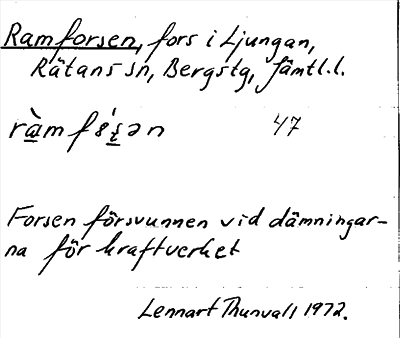 Ramforsen, fors i Ljungan,
Rätans sn, Bergstg, Jämtl.l.
47
Forsen försvunnen vid dämningar-
na för kraftverket
Lennart Thunvall 1972.